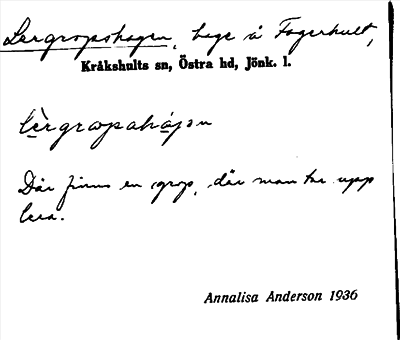 Lergropshagen, hage å Fagerhult,
Kråkshults sn, Östra hd, Jönk. l.
lèrgropshájən
Där finns en grop, där man tar upp
lera.
Annalisa Anderson 1936